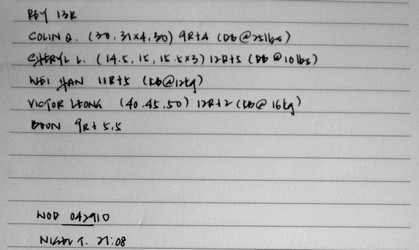 REY 13R
COLIN Q. (30, 31x4, 30) 9R+4 (DB @25lbs)
SHERYL L. (14.5, 15, 15.5x3) 12R+5 (DB @10lbs)
WEI HAN 11R+5 (KB@12kg)
VICTOR LEONG (40, 45, 50) 12R+2 (KB@ 16kg)
BOON 9R+5.5
WOD 042910
NIGEL T. 21:08